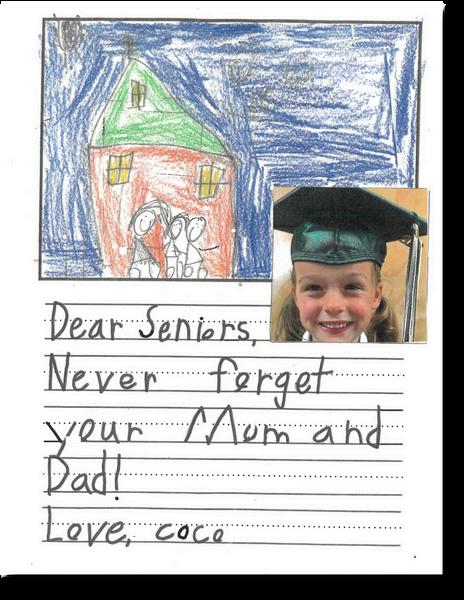 Dear Seniors,
Never forget
your Mom and
Dad!
Love, coco